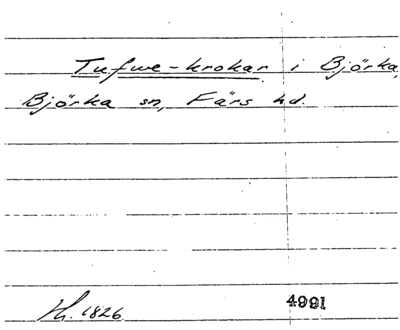 Tufwe-krokar i Björka,
Björka sn, Färs hd.
Hs. 1826 4991